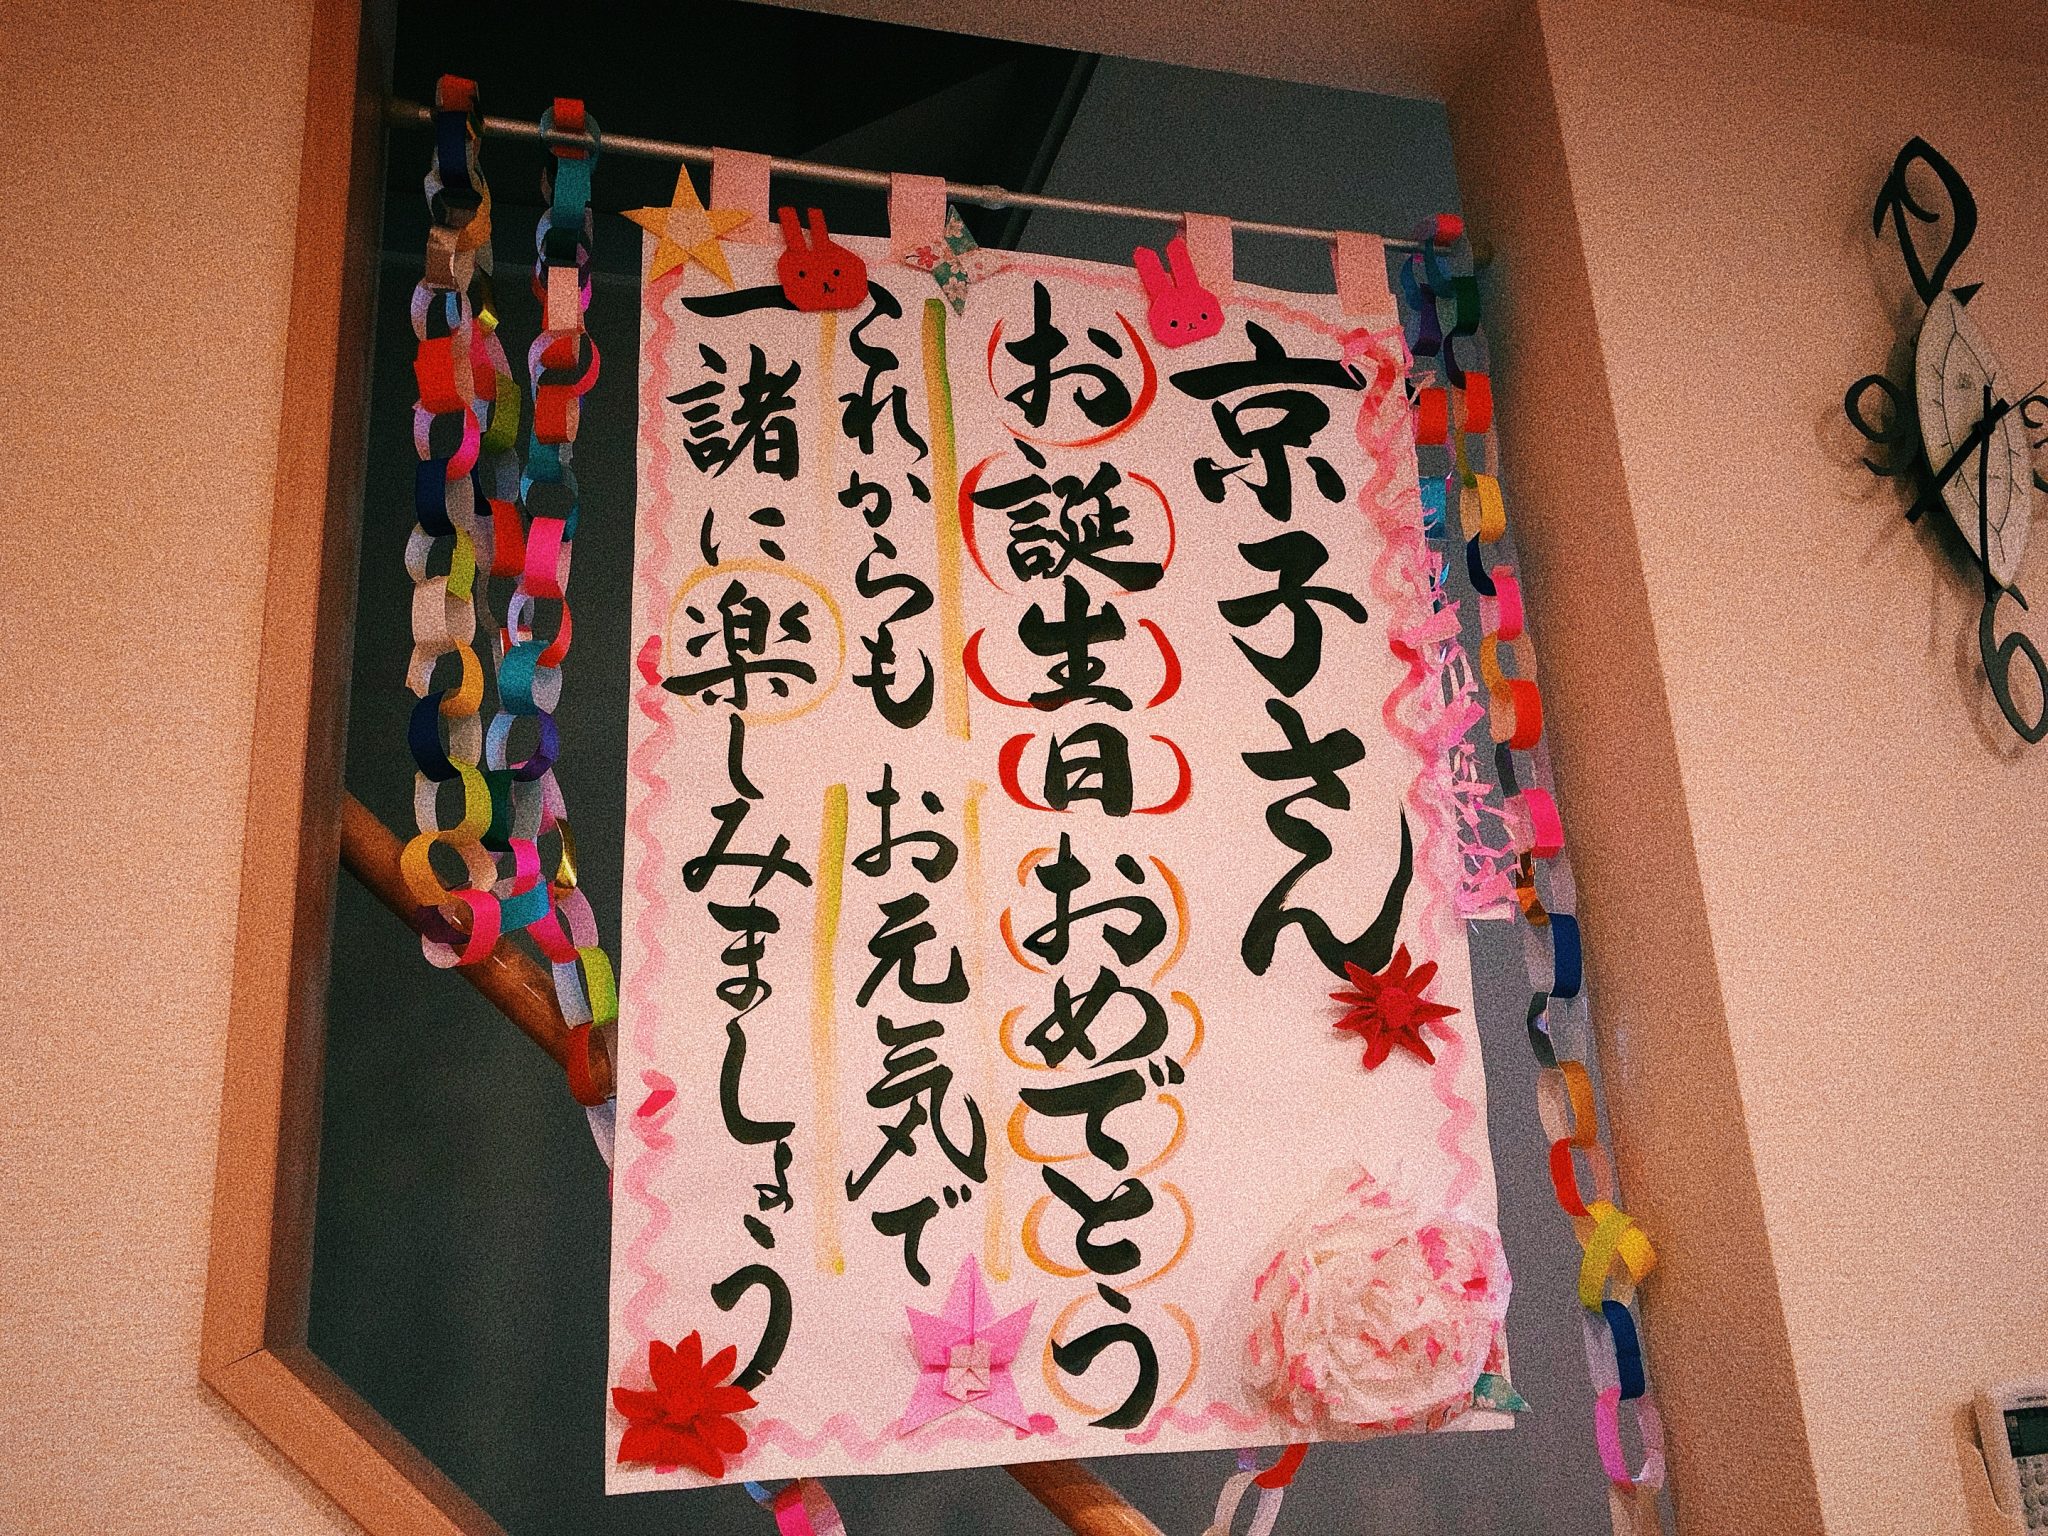 京子さん
お誕生日おめでとう
これからも お元気で
一諸に楽しみましょう
12
9
6